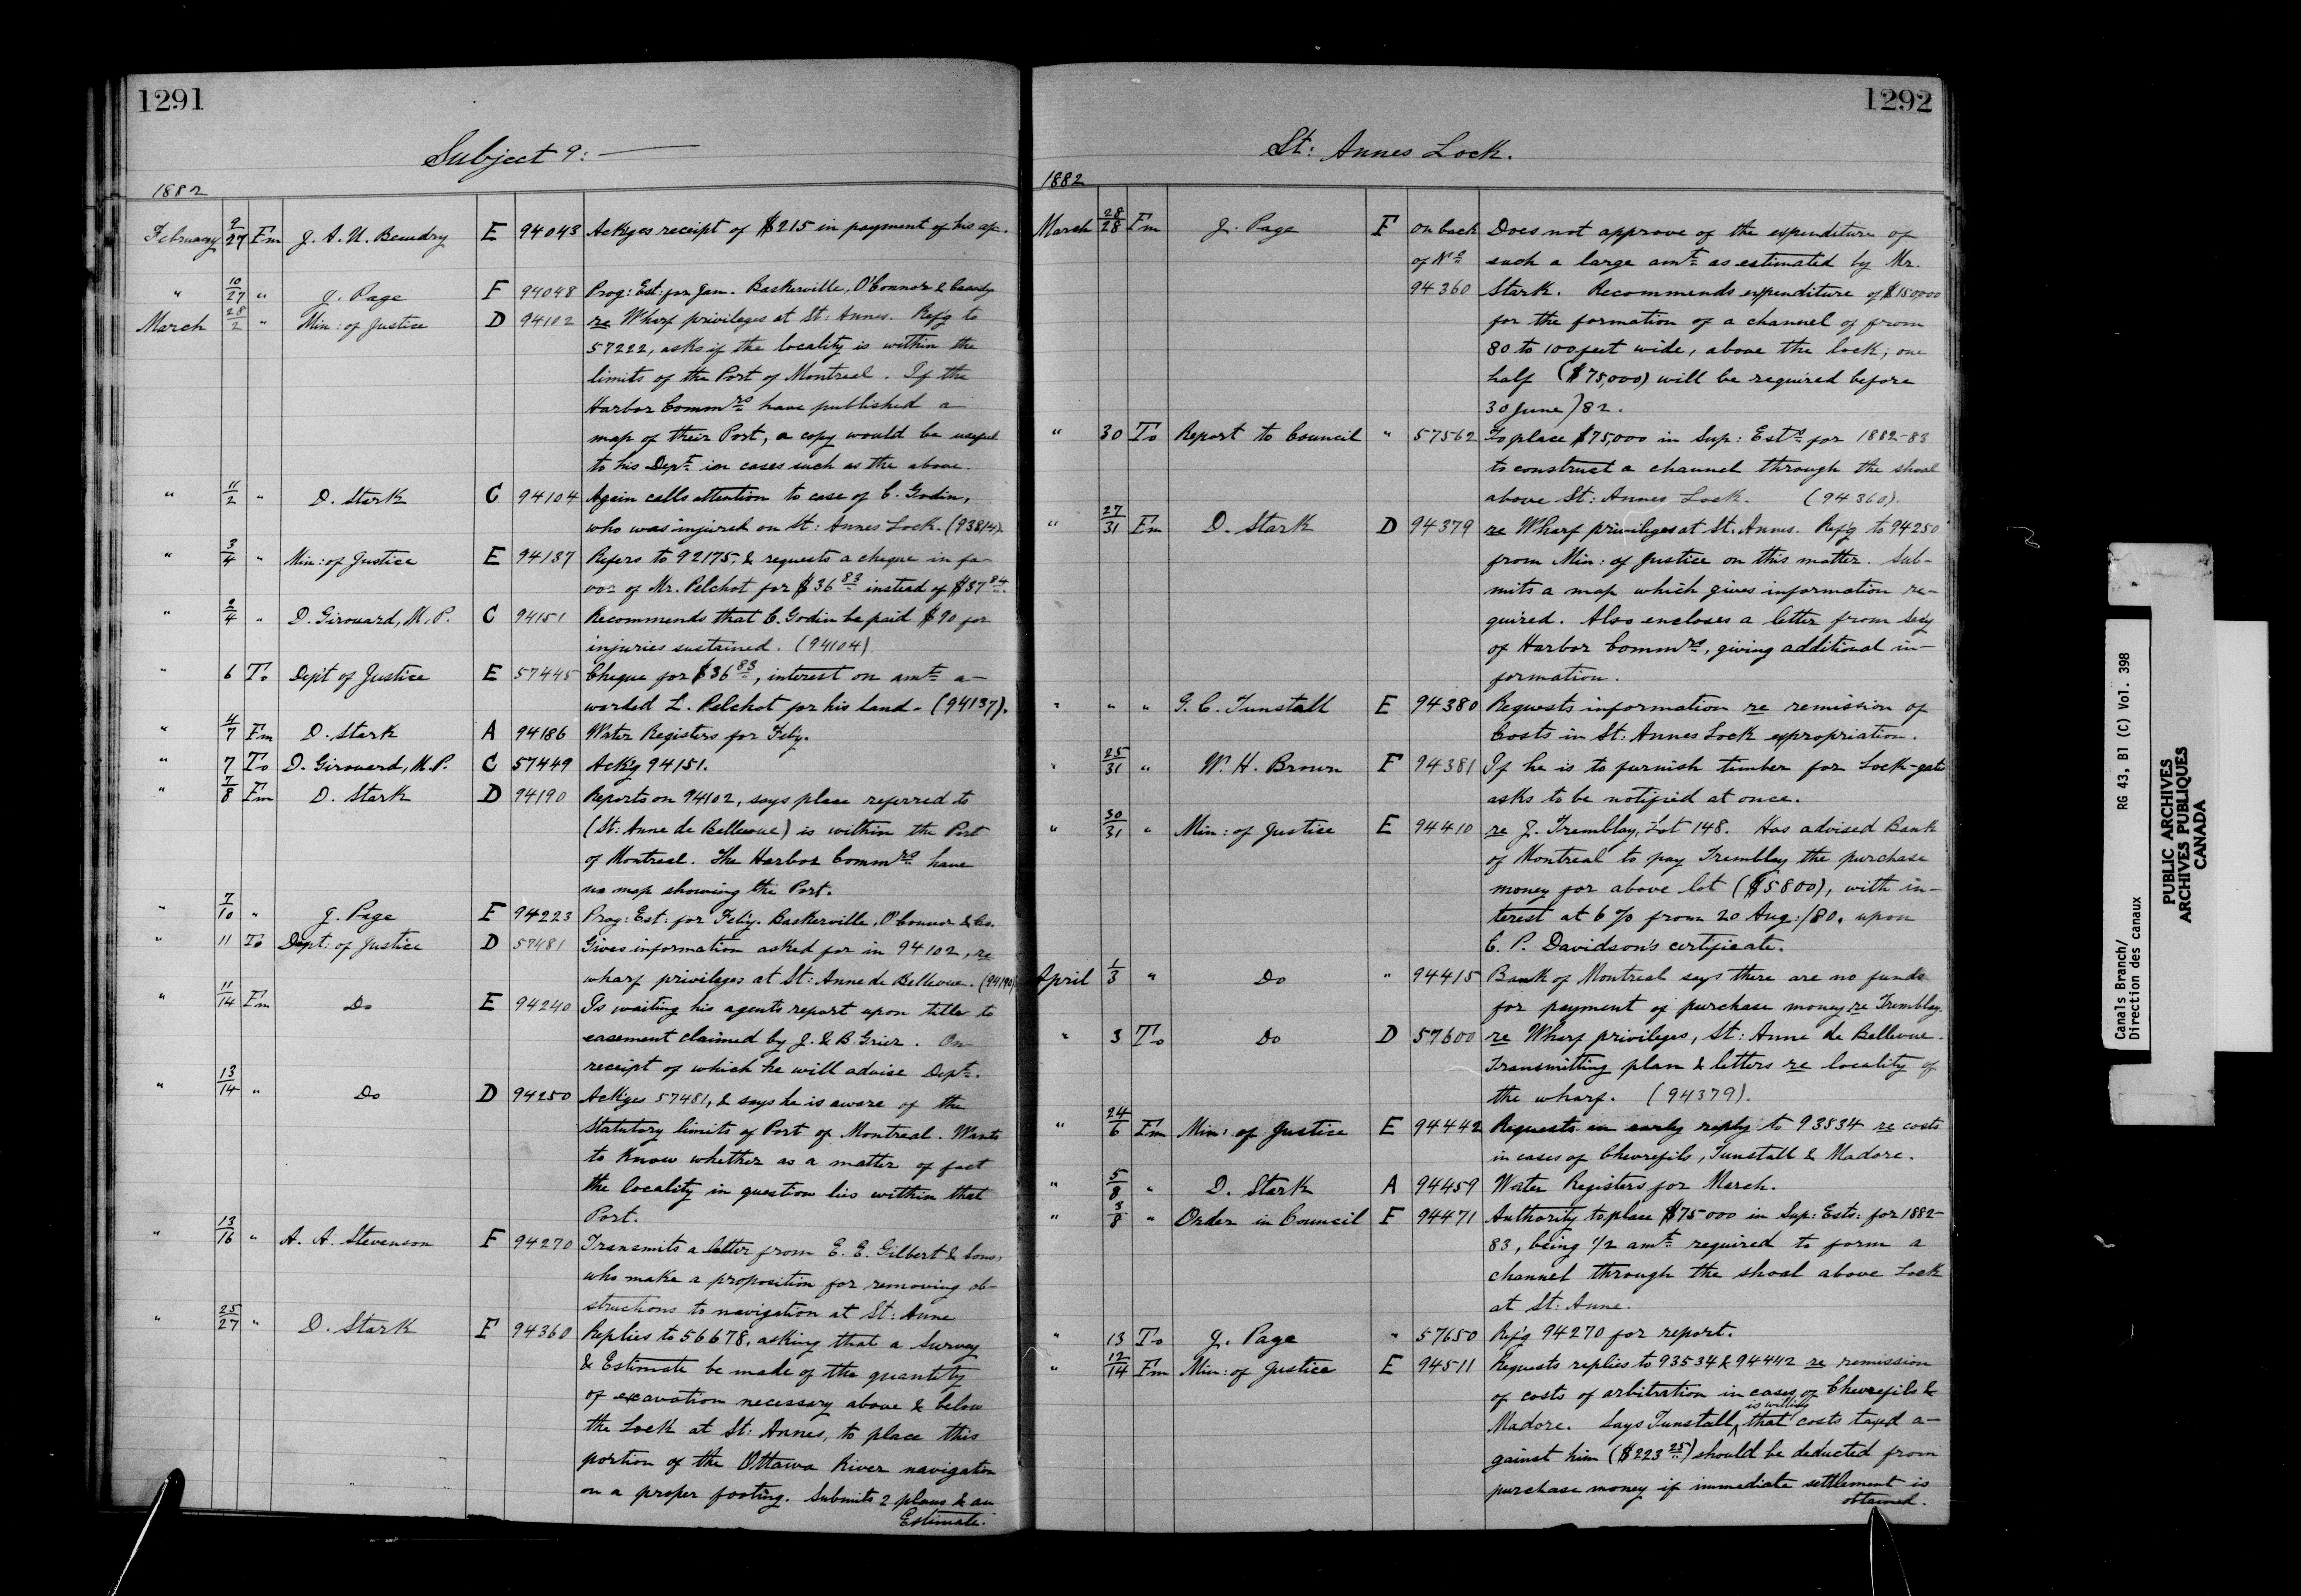 1291
Subject 9:
1882
February 9/27 Fm J. A. U. Beaudry E 94043 Ackges receipt of $215 in payment of his a/c.
" 10/27 " J. Page F 94048 Prog: Est: for Jan. Baskerville, O'Connor & Cassidy
March 28/2 " Min: of Justice D 94102 re Wharf privileges at St: Annes. Ref'g to
57222, asks if the locality is within the
limits of the Port of Montreal. If the
Harbor Commrs have published a
map of their Port, a copy would be useful
to his Dept in cases such as the above.
" 11/2 " D. Stark C 94104 Again calls attention to case of C. Godin,
who was injured on St: Annes Lock. (93814).
" 3/4 " Min: of Justice E 94137 Refers to 92175, & requests a cheque in fa-
vor of Mr. Pelchot for $36 83 instead of $37 84.
" 2/4 " D. Girouard, M.P. C 94151 Recommends that C. Godin be paid $90 for
injuries sustained. (94104)
" 6 To Dep't of Justice E 57445 Cheque for $36 83, interest on amt a-
warded L. Pelchot for his land. (94137).
" 4/7 Fm D. Stark A 94186 Water Registers for Feb'y.
" 7 To D. Girouard, M.P. C 57449 Ack'g 94151.
" 7/8 Fm D. Stark D 94190 Reports on 94102, says place referred to
(St: Anne de Bellevue) is within the Port
of Montreal. The Harbor Commrs have
no map showing the Port.
" 7/10 " J. Page F 94223 Prog: Est: for Feb'y. Baskerville, O'Connor & Co.
" 11 To Dept: of Justice D 57481 Gives information asked for in 94102, re
wharf privileges at St: Anne de Bellevue. (94190)
" 11/14 Fm Do E 94240 Is waiting his agents report upon title to
easement claimed by J. & B. Grier. On
receipt of which he will advise Dept.
" 13/14 " Do D 94250 Ackges 57481, & says he is aware of the
Statutory limits of Port of Montreal. Wants
to know whether as a matter of fact
the locality in question lies within that
Port.
" 13/16 " A. A. Stevenson F 94270 Transmits a letter from E. E. Gilbert & Sons,
who make a proposition for removing ob-
structions to navigation at St: Anne
" 25/27 " D. Stark F 94360 Replies to 56678, asking that a Survey
& Estimate be made of the quantity
of excavation necessary above & below
the Lock at St: Annes, to place this
portion of the Ottawa River navigation
on a proper footing. Submits 2 plans & an
Estimate.
1292
St: Annes Lock.
1882
March 28/28 Fm J. Page F on back Does not approve of the expenditure of
of No such a large amt as estimated by Mr.
94360 Stark. Recommends expenditure of $150,000
for the formation of a channel of from
80 to 100 feet wide, above the lock; one
half ($75,000) will be required before
30 June/82.
" 30 To Report to Council " 57562 To place $75,000 in Sup: Ests for 1882-83
to construct a channel through the shoal
above St: Annes Lock. (94360).
" 27/31 Fm D. Stark D 94379 re Wharf privileges at St. Annes. Ref'g to 94250
from Min: of Justice on this matter. Sub-
mits a map which gives information re-
quired. Also encloses a letter from Sec'y
of Harbor Commrs, giving additional in-
formation.
" " " G. C. Tunstall E 94380 Requests information re remission of
Costs in St: Annes Lock expropriation.
" 25/31 " W. H. Brown F 94381 If he is to furnish timber for Lock-gates
asks to be notified at once.
" 30/31 " Min: of Justice E 94410 re J. Tremblay, Lot 148. Has advised Bank
of Montreal to pay Tremblay the purchase
money for above lot ($5800), with in-
terest at 6 % from 20 Aug:/80, upon
C. P. Davidson's certificate.
April 1/3 " Do " 94415 Bank of Montreal says there are no funds
for payment of purchase money re Tremblay.
" 3 To Do D 57600 re Wharf privileges, St: Anne de Bellevue.
Transmitting plan & letters re locality of
the wharf. (94379).
" 24/6 Fm Min: of Justice E 94442 Requests an early reply to 93534 re costs
in cases of Chevrefils, Tunstall & Madore.
" 5/8 " D. Stark A 94459 Water Registers for March.
" 3/8 " Order in Council F 94471 Authority to place $75000 in Sup: Ests: for 1882-
83, being 1/2 amt required to form a
channel through the shoal above Lock
at St: Anne.
" 13 To J. Page " 57650 Ref'g 94270 for report.
" 12/14 Fm Min: of Justice E 94511 Requests replies to 93534 & 94442 re remission
of costs of arbitration in cases of Chevrefils &
Madore. Says Tunstall is willing that costs taxed a-
gainst him ($223 25) should be deducted from
purchase money if immediate settlement is
obtained.
Canals Branch/ RG 43, B1 (C) Vol. 398
Direction des canaux
PUBLIC ARCHIVES
ARCHIVES PUBLIQUES
CANADA